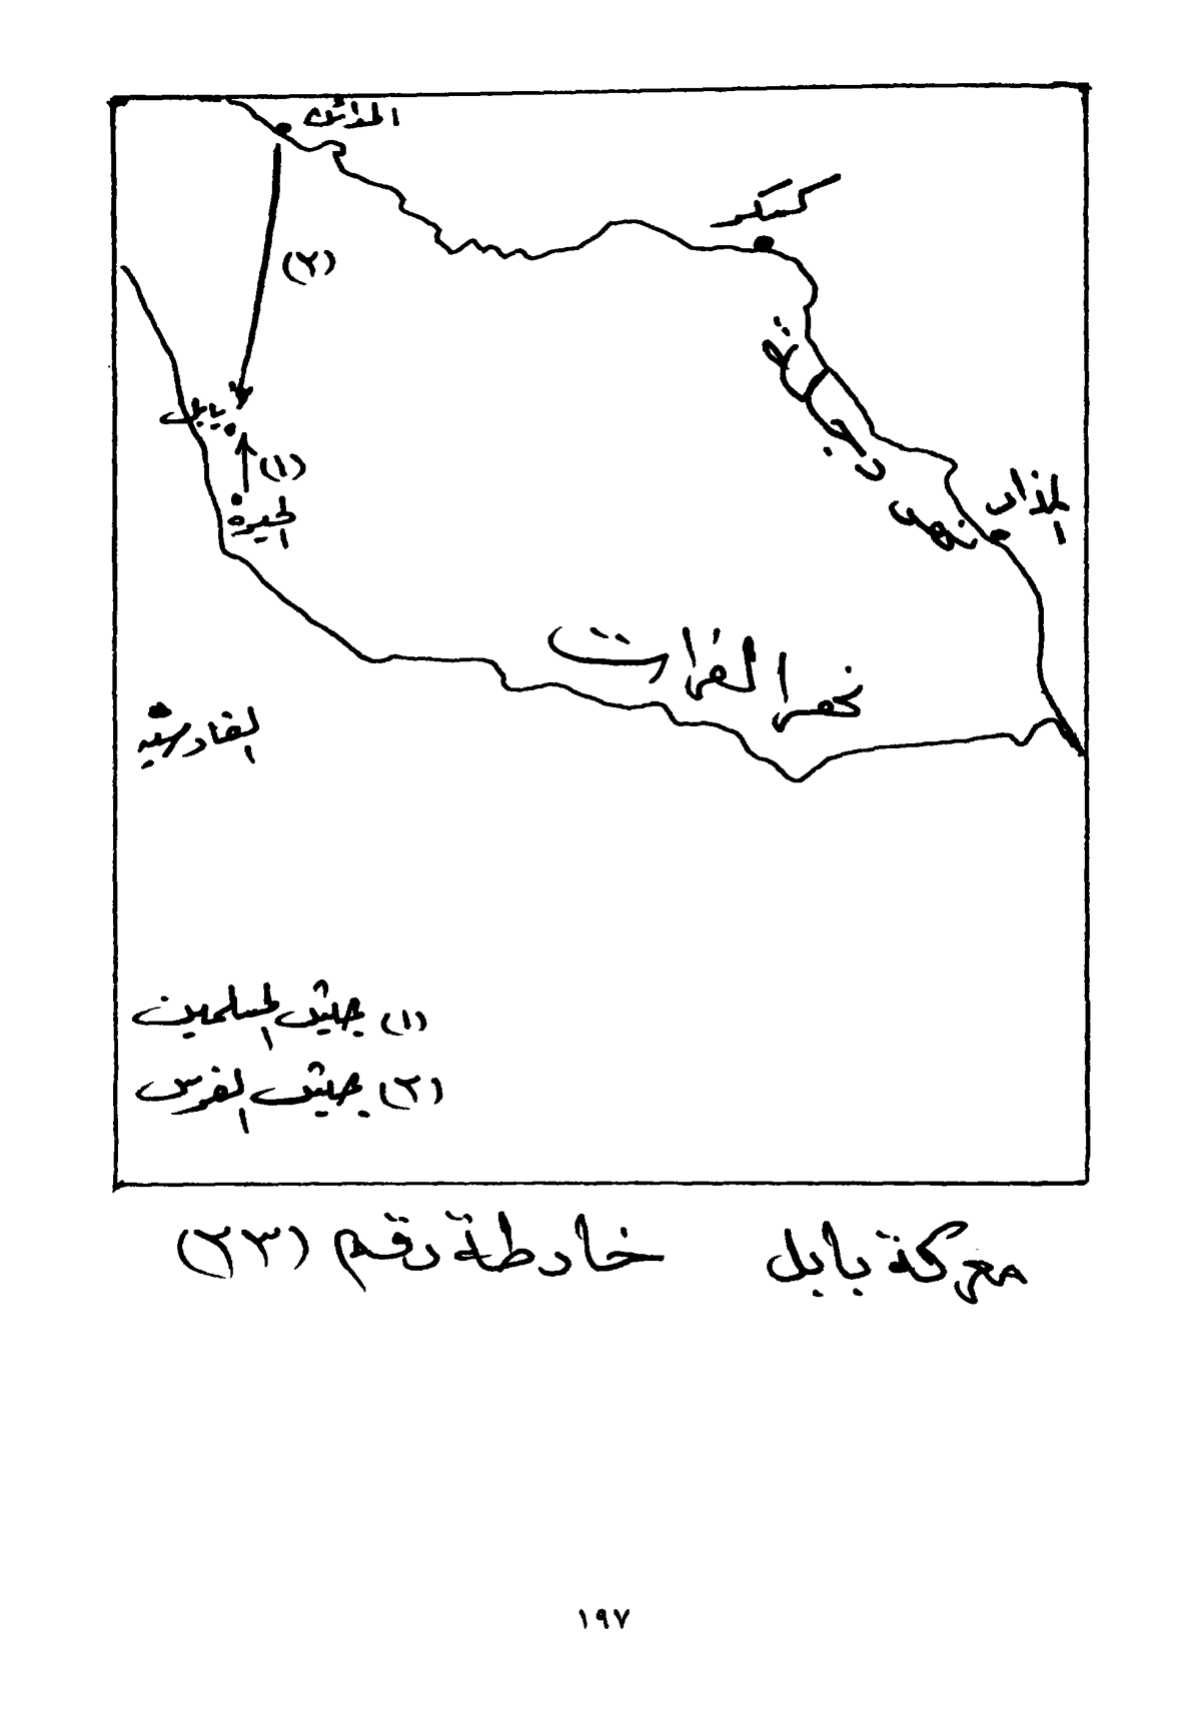 المدائن
كسكر
(٢)
نهر دجلة
بابل
(١)
الحيرة
المذار
نهر الفرات
القادسية
(١) جيش المسلمين
(٢) جيش الفرس
معركة بابل خارطة رقم (٢٣)
١٩٧